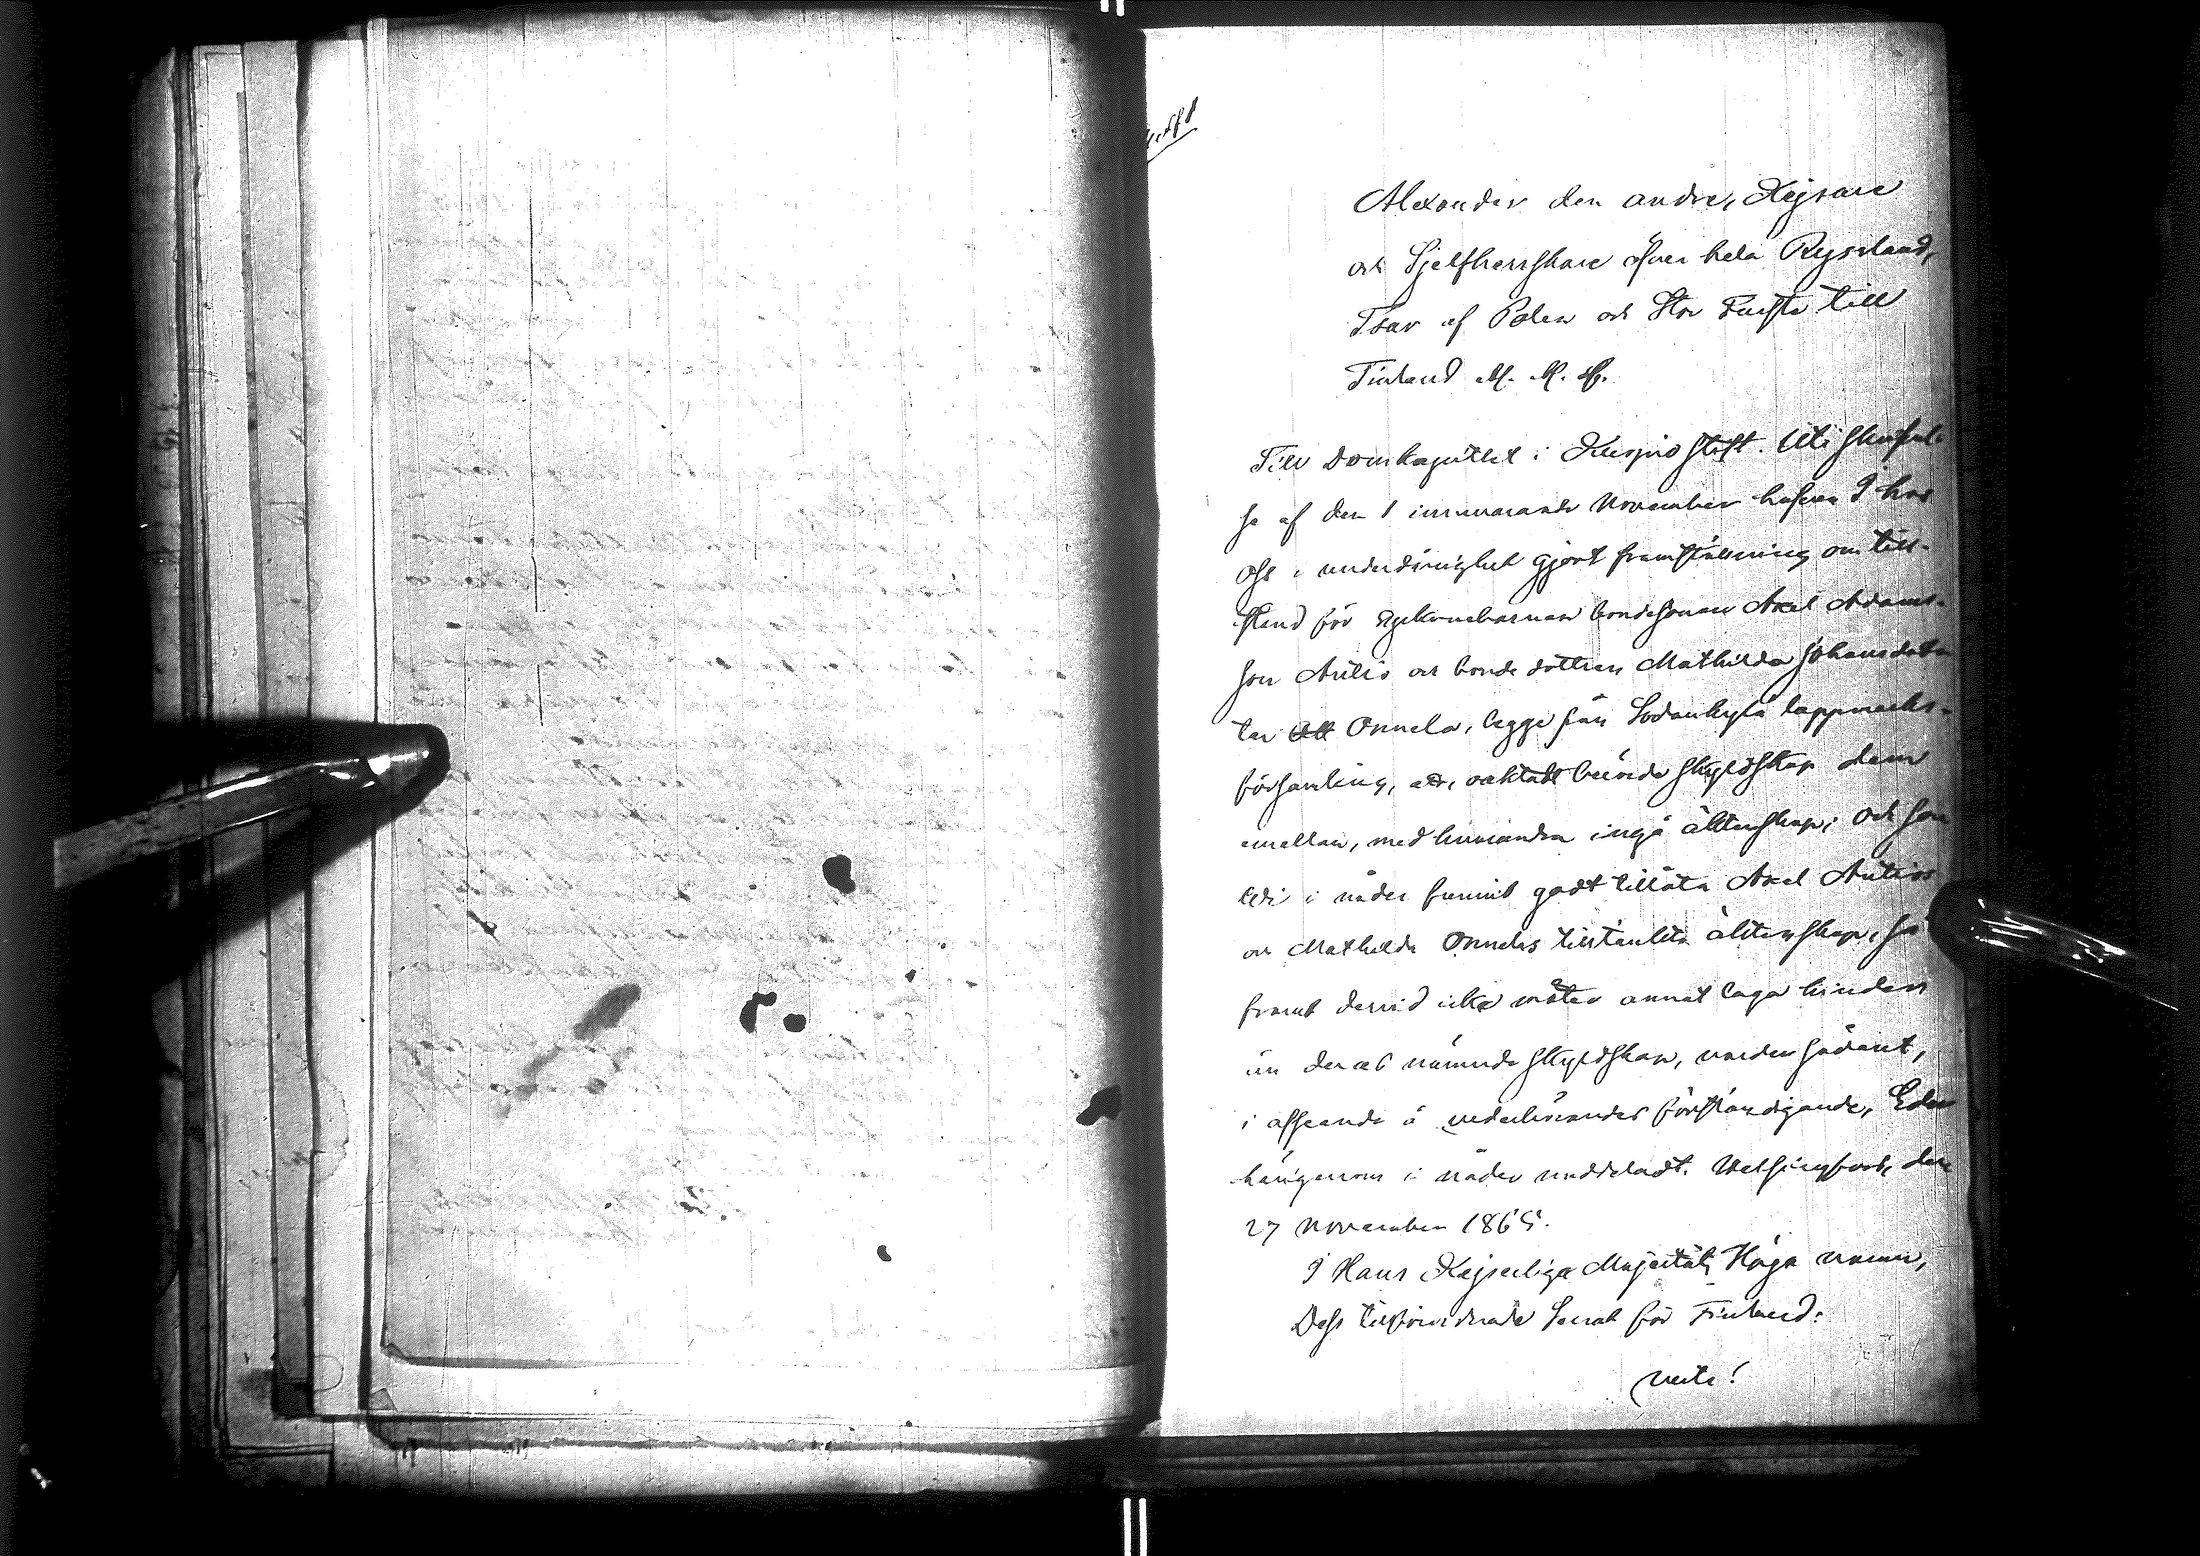 Alexander den andre, Kejsare
och Sjelfherrskare öfver hela Ryssland,
Tsar af Polen och Stor Furste till
Finland M. M. M.
Till Domkapitlet i Kuopio Stift. Uti skrifvel-
se af den 1 innevarande November hafven I hos
Oss i underdånighet gjort framställning om till-
stånd för syskonebarnen bondesonen Axel Adams-
son Autio och bondedottren Mathilda Johansdot-
ter Onnela, begge från Sodankylä lappmarks-
församling, att, oaktadt berörde skyldskap dem
emellan, med hvarandra ingå äktenskap; Och som
Wi i nåder funnit godt tillåta Axel Autios
och Mathilda Onnelas tilltänkta äktenskap, så
framt dervid icke möter annat laga hinder
än deras nämnde skyldskap, varder sådant,
i afseende å vederbörandes förständigande, Eder
härigenom i nåder meddeladt. Helsingfors, den
27 November 1865.
I Hans Kejserliga Majestäts Höga namn,
Dess tillförordnade Senat för Finland.
verte!